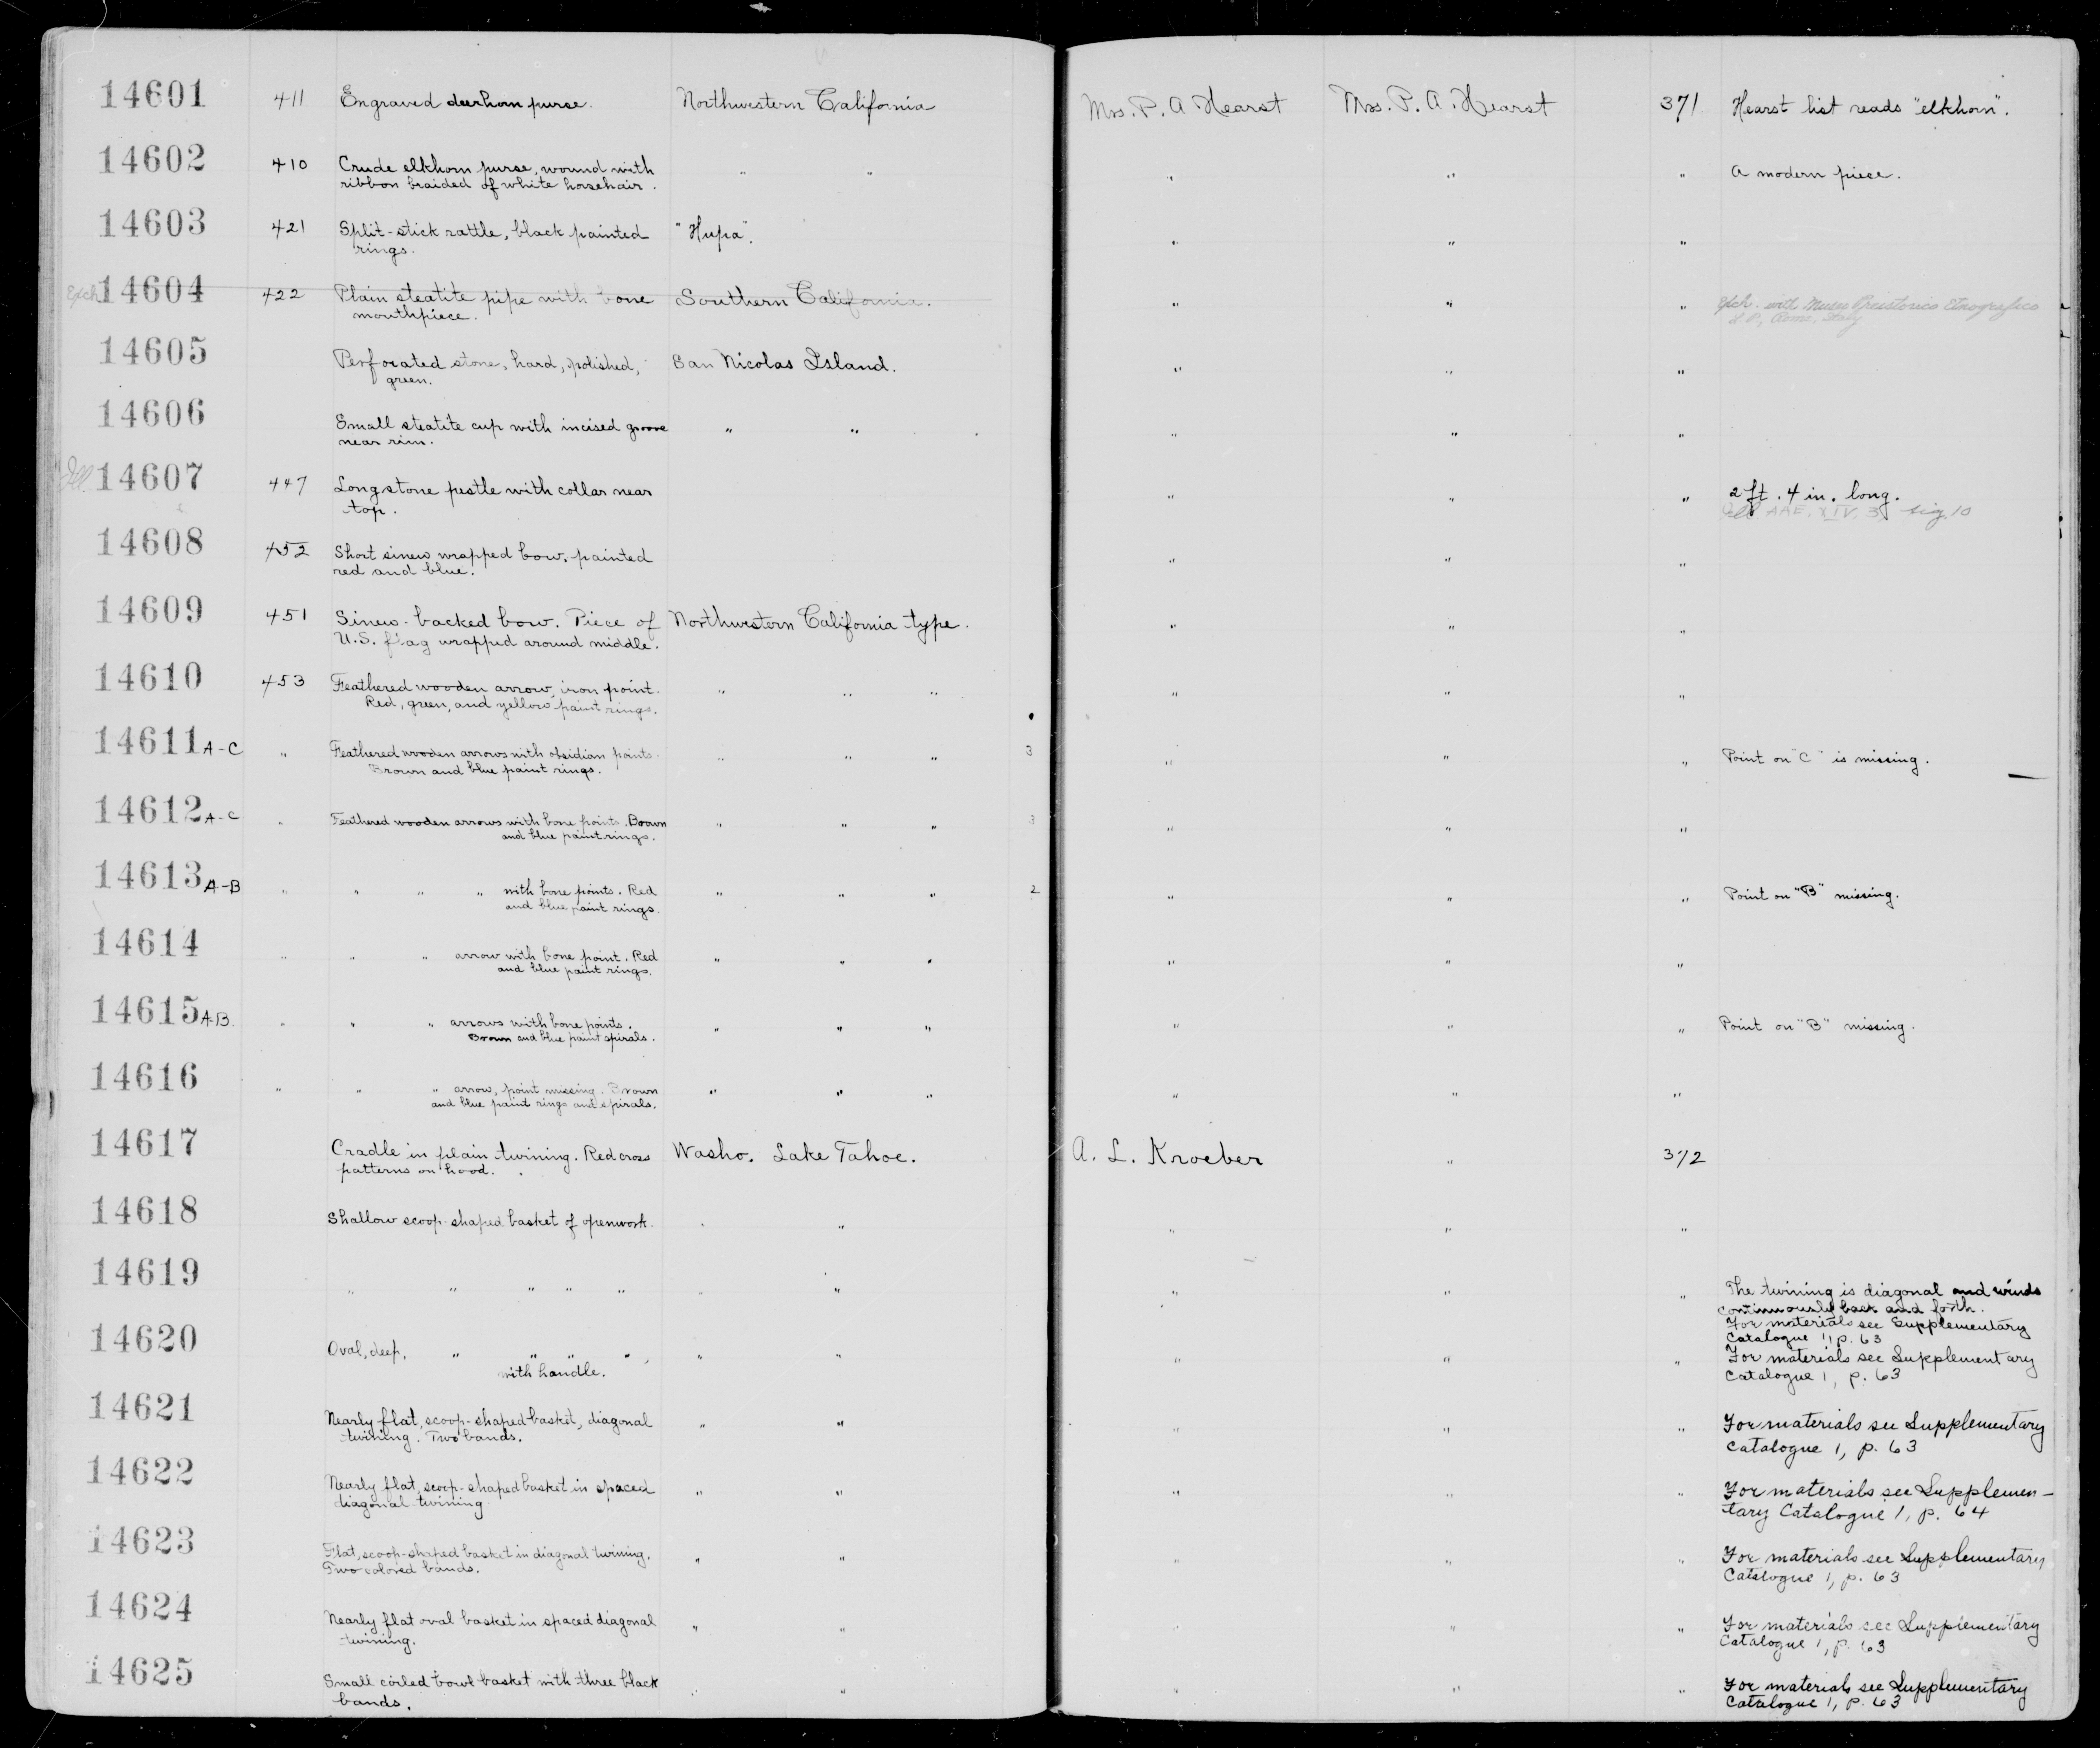 14601 411 Engraved deerhorn purse. Northwestern California Mrs. P. A. Hearst Mrs. P. A. Hearst 371 Hearst list reads "elkhorn".
14602 410 Crude elkhorn purse, wound with " " " " " A modern piece.
ribbon braided of white horsehair.
14603 421 Split-stick rattle, black painted "Hupa". " " "
rings.
Exch. 14604 422 Plain steatite pipe with bone Southern California. " " " Exch. with Museo Preistorico Etnografico
mouthpiece. L.P., Rome, Italy
14605 Perforated stone, hard, polished, San Nicolas Island. " " "
green.
14606 Small steatite cup with incised groove " " " " "
near rim.
Ill. 14607 447 Long stone pestle with collar near " " " 2 ft. 4 in. long.
top. Ill. AAE, XIV, 3, fig. 10
14608 452 Short sinew wrapped bow, painted " " "
red and blue.
14609 451 Sinew-backed bow. Piece of Northwestern California type. " " "
U.S. flag wrapped around middle.
14610 453 Feathered wooden arrow, iron point. " " " " " "
Red, green, and yellow paint rings.
14611 A-C " Feathered wooden arrows with obsidian points. " " " 3 " " " Point on "C" is missing.
Brown and blue paint rings.
14612 A-C " Feathered wooden arrows with bone points. Brown " " " 3 " " "
and blue paint rings.
14613 A-B " " " " with bone points. Red " " " 2 " " " Point on "B" missing.
and blue paint rings.
14614 " " " arrow with bone point. Red " " " " " "
and blue paint rings.
14615 A-B. " " " arrows with bone points. " " " " " " Point on "B" missing.
Brown and blue paint spirals.
14616 " " " arrow, point missing. Brown " " " " " "
and blue paint rings and spirals.
14617 Cradle in plain twining. Red cross Washo. Lake Tahoe. A. L. Kroeber " 372
patterns on hood.
14618 Shallow scoop-shaped basket of openwork. " " " " "
14619 " " " " " " " " " " The twining is diagonal and winds
continuously back and forth.
For materials see Supplementary
Catalogue 1, p. 63
14620 Oval, deep, " " " ", " " " " " For materials see Supplementary
with handle. Catalogue 1, p. 63
14621 Nearly flat, scoop-shaped basket, diagonal " " " " " For materials see Supplementary
twining. Two bands. Catalogue 1, p. 63
14622 Nearly flat, scoop-shaped basket in spaced " " " " " For materials see Supplemen-
diagonal twining. tary Catalogue 1, p. 64
14623 Flat, scoop-shaped basket in diagonal twining. " " " " " For materials see Supplementary
Two colored bands. Catalogue 1, p. 63
14624 Nearly flat oval basket in spaced diagonal " " " " " For materials see Supplementary
twining. Catalogue 1, p. 63
14625 Small coiled bowl basket with three black " " " " " For materials see Supplementary
bands. Catalogue 1, p. 63